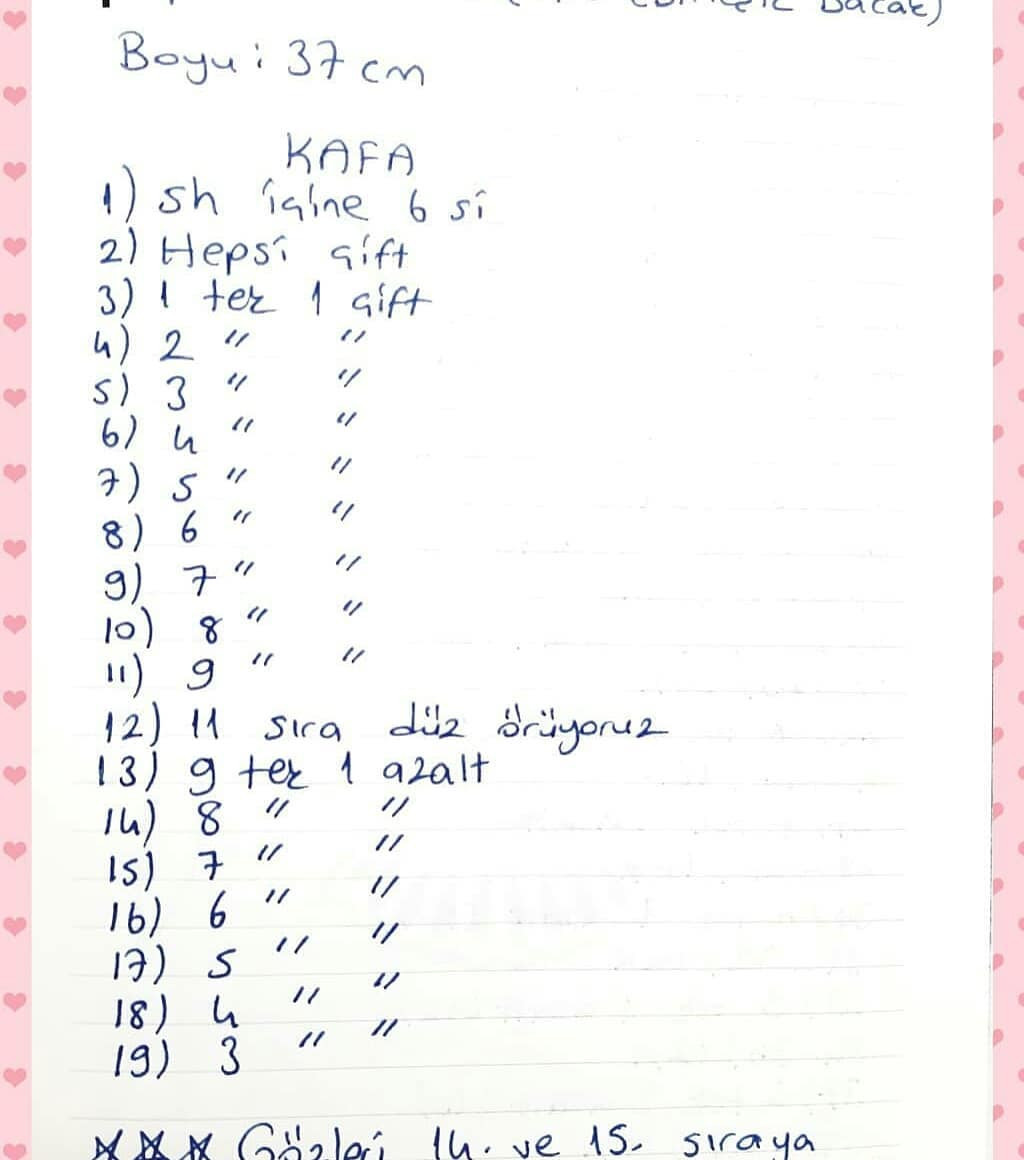 Bacak)
Boyu: 37 cm
KAFA
1) sh içine 6 si
2) Hepsi çift
3) 1 tek 1 çift
4) 2 " "
5) 3 " "
6) 4 " "
7) 5 " "
8) 6 " "
9) 7 " "
10) 8 " "
11) 9 " "
12) 11 sıra düz örüyoruz
13) 9 tek 1 azalt
14) 8 " "
15) 7 " "
16) 6 " "
17) 5 " "
18) 4 " "
19) 3 " "
*** Gözleri 14. ve 15. sıraya